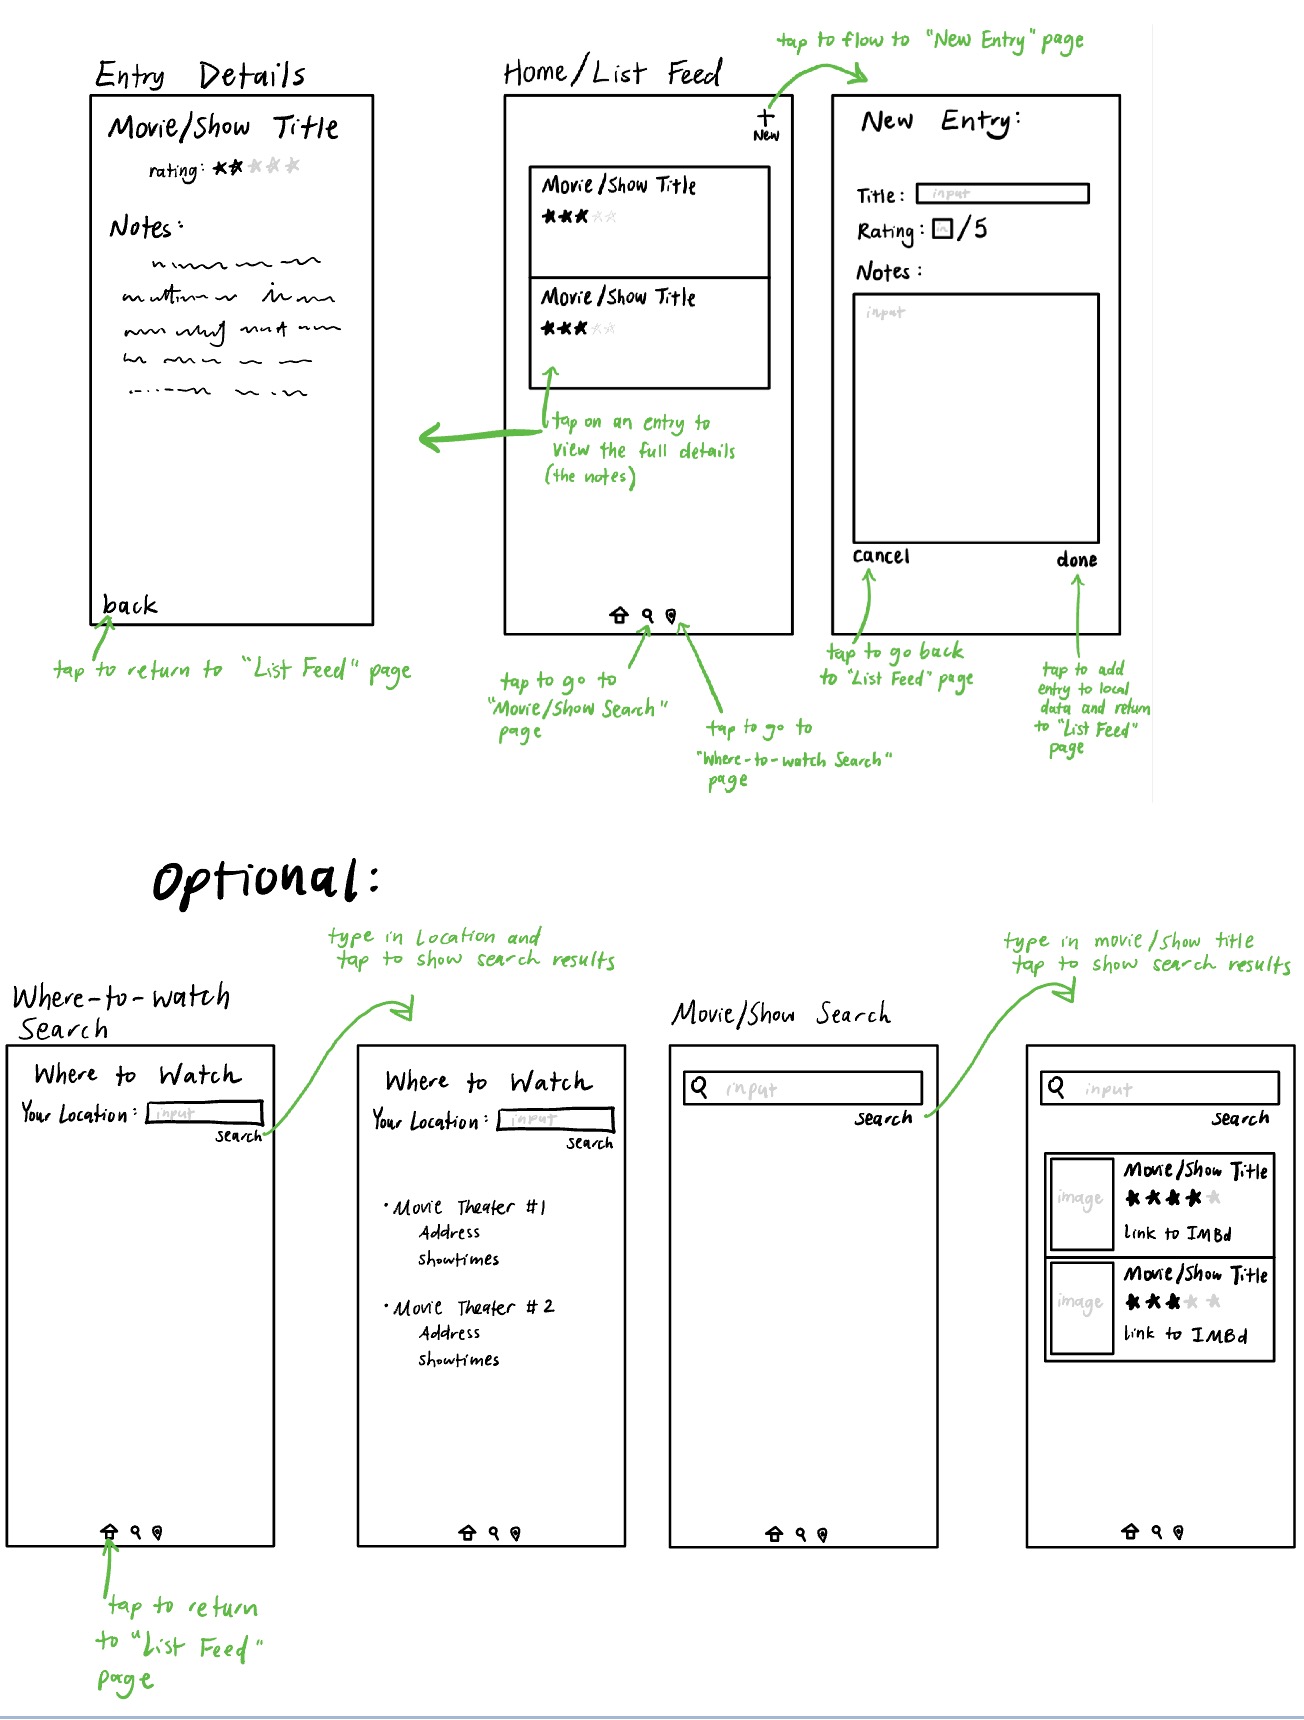 tap to flow to "New Entry" page
Entry Details
Movie/Show Title
rating:
Notes:
back
tap to return to "List Feed" page
Home/List Feed
New
Movie/Show Title
Movie/Show Title
tap on an entry to
view the full details
(the notes)
tap to go to
"Movie/Show Search"
page
tap to go to
"Where-to-watch Search"
page
New Entry:
Title: input
Rating: in /5
Notes:
input
cancel
done
tap to go back
to "List Feed" page
tap to add
entry to local
data and return
to "List Feed"
page
Optional:
type in Location and
tap to show search results
Where-to-watch
Search
Where to Watch
Your Location: input
search
tap to return
to "List Feed"
page
Where to Watch
Your Location: input
search
• Movie Theater #1
Address
showtimes
• Movie Theater #2
Address
showtimes
Movie/Show Search
input
search
type in movie/show title
tap to show search results
input
search
image
Movie/Show Title
link to IMBd
image
Movie/Show Title
link to IMBd